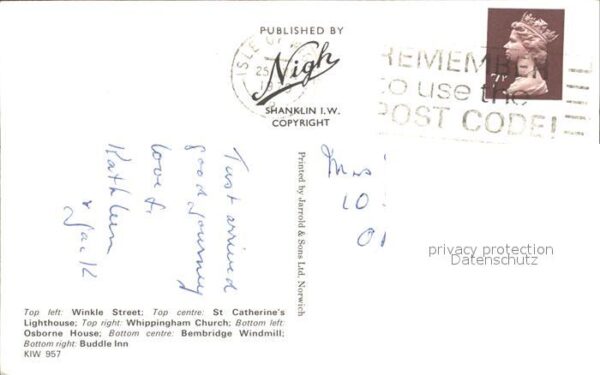 PUBLISHED BY
Nigh
SHANKLIN I.W.
COPYRIGHT
ISLE OF
25
19
REMEMBER
to use the
POST CODE!
7P
Just arrived
good journey
love to
Kathleen
& Jack
Printed by Jarrold & Sons Ltd, Norwich
Mrs
10
privacy protection
Datenschutz
Top left: Winkle Street; Top centre: St Catherine's
Lighthouse; Top right: Whippingham Church; Bottom left:
Osborne House; Bottom centre: Bembridge Windmill;
Bottom right: Buddle Inn
KIW 957